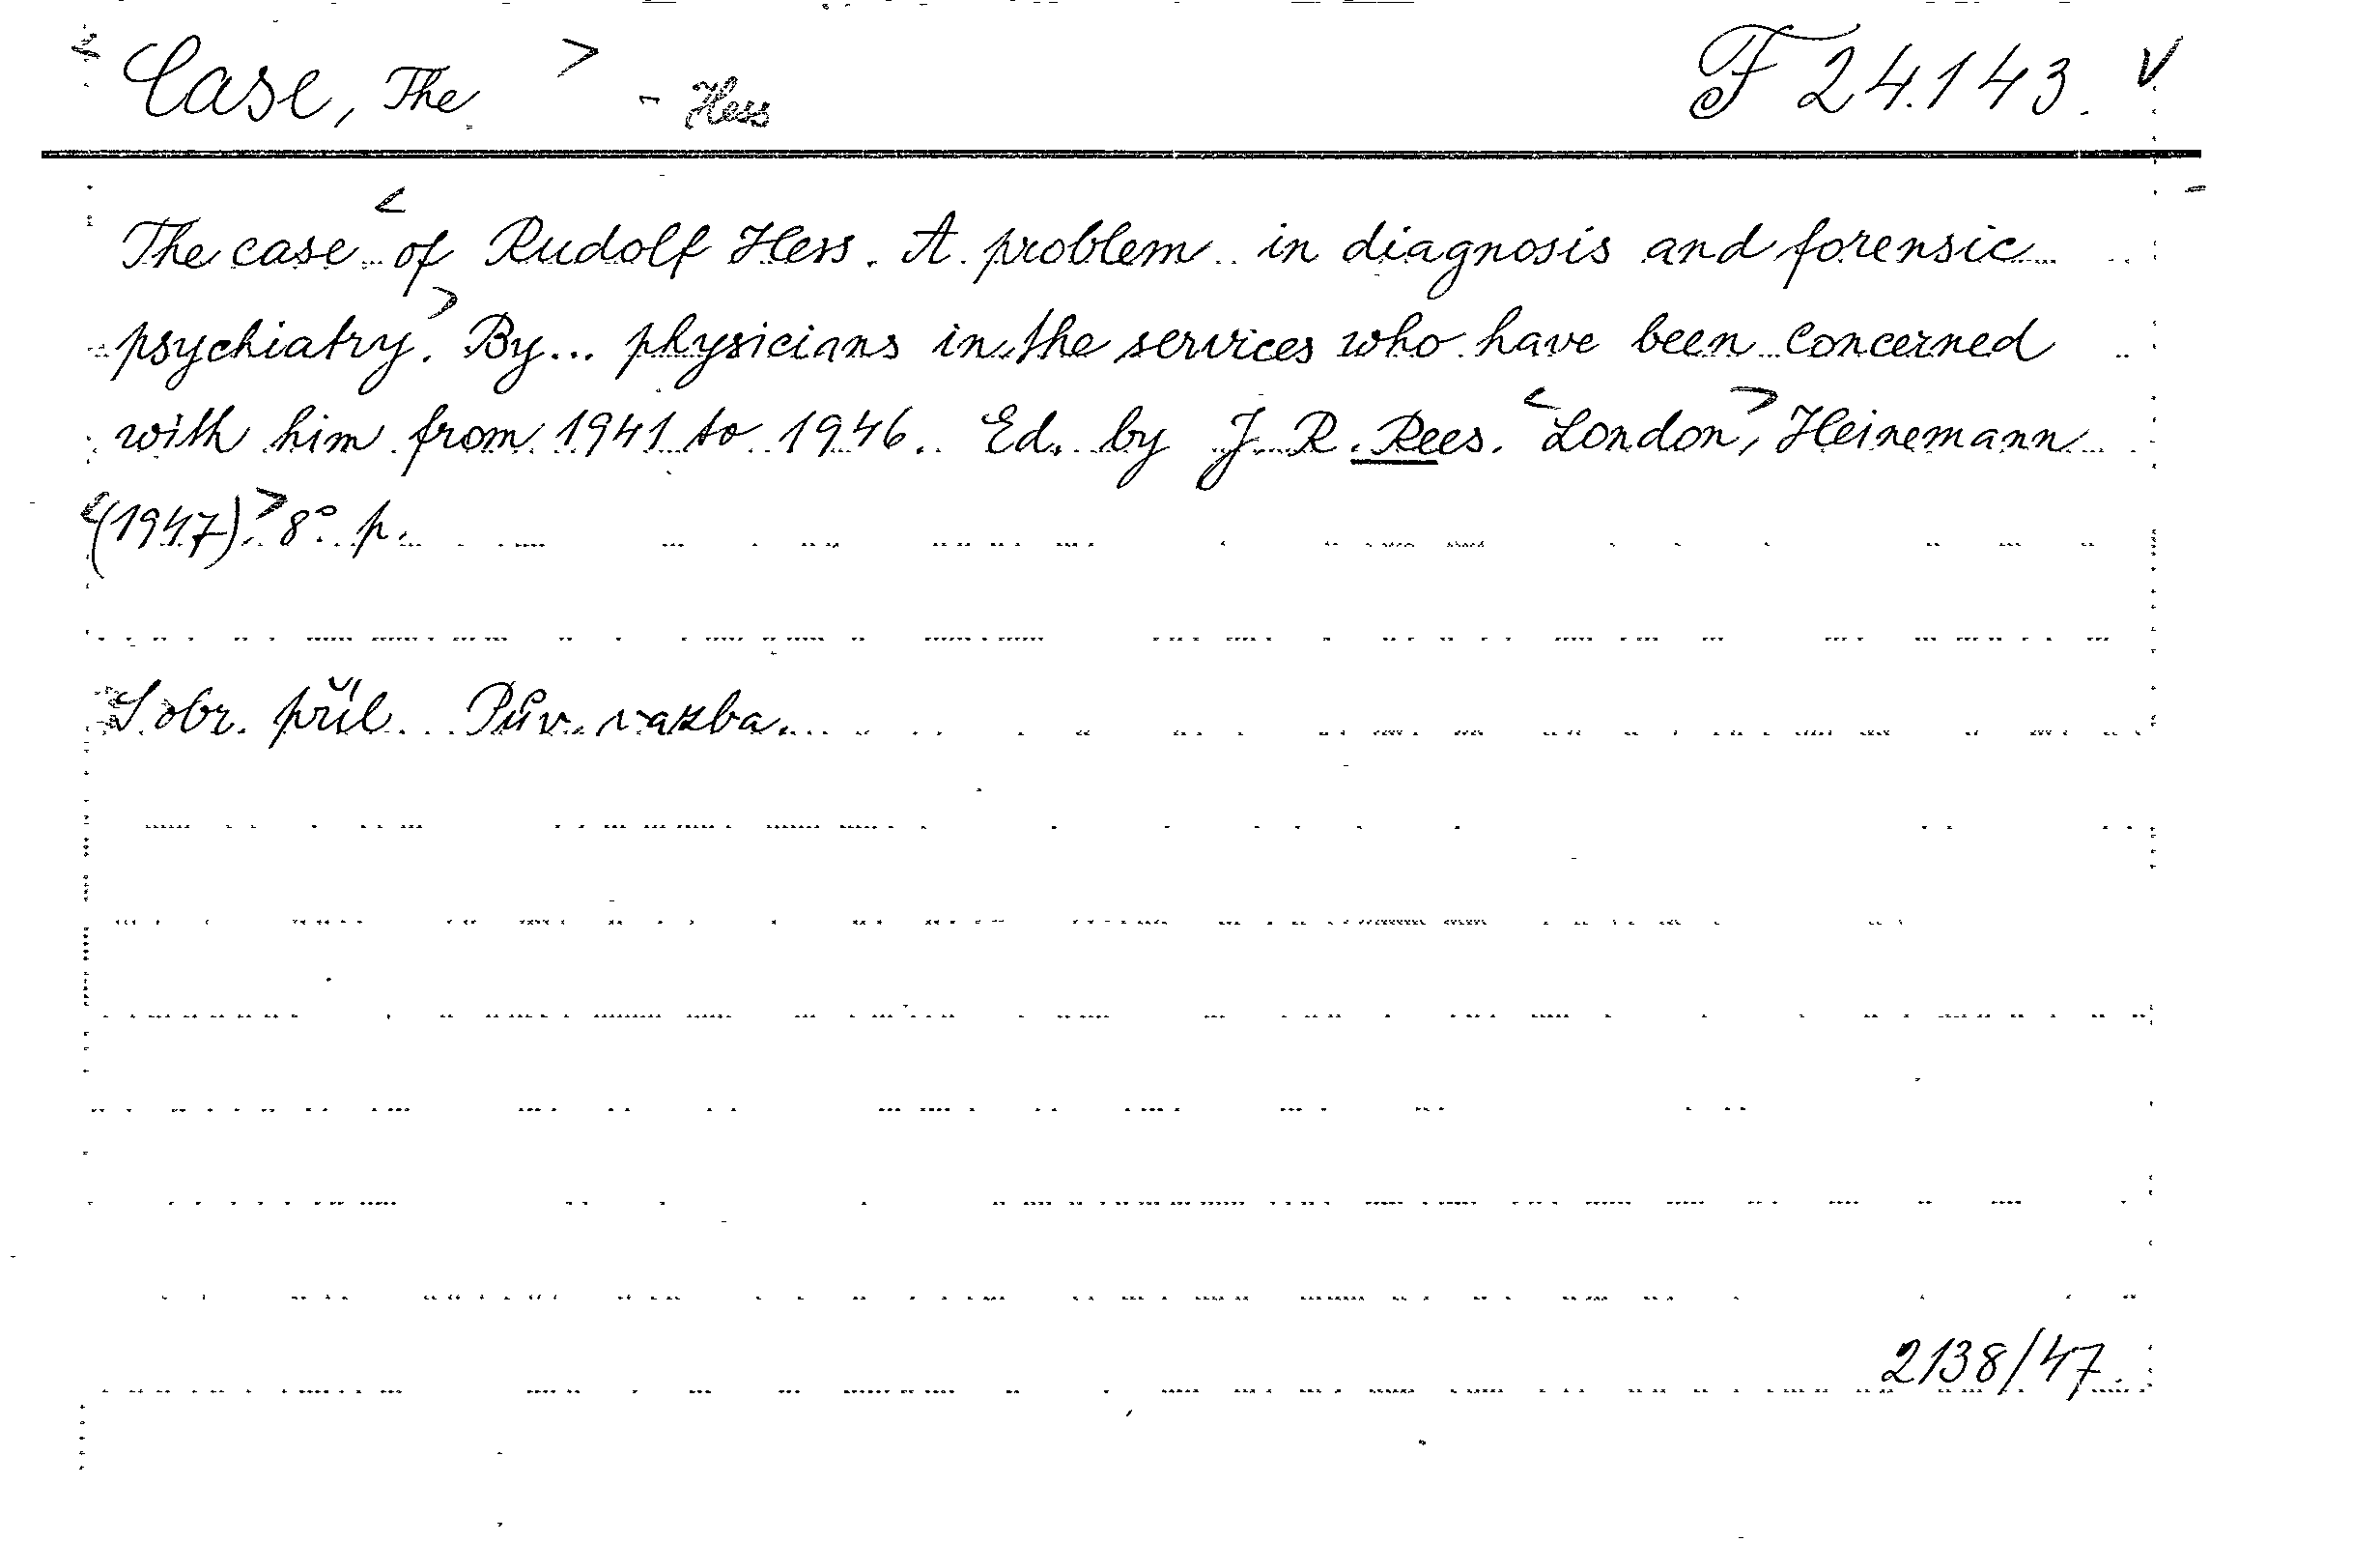 < Case, The > - Hess F 24.143. v
The case < of Rudolf Hess. A problem in diagnosis and forensic
psychiatry. > By... physicians in the services who have been concerned
with him from 1941 to 1946. Ed. by J. R. Rees. < London, > Heinemann
< (1947). > 8° p.
S obr. příl. Pův. vazba.
2138/47.